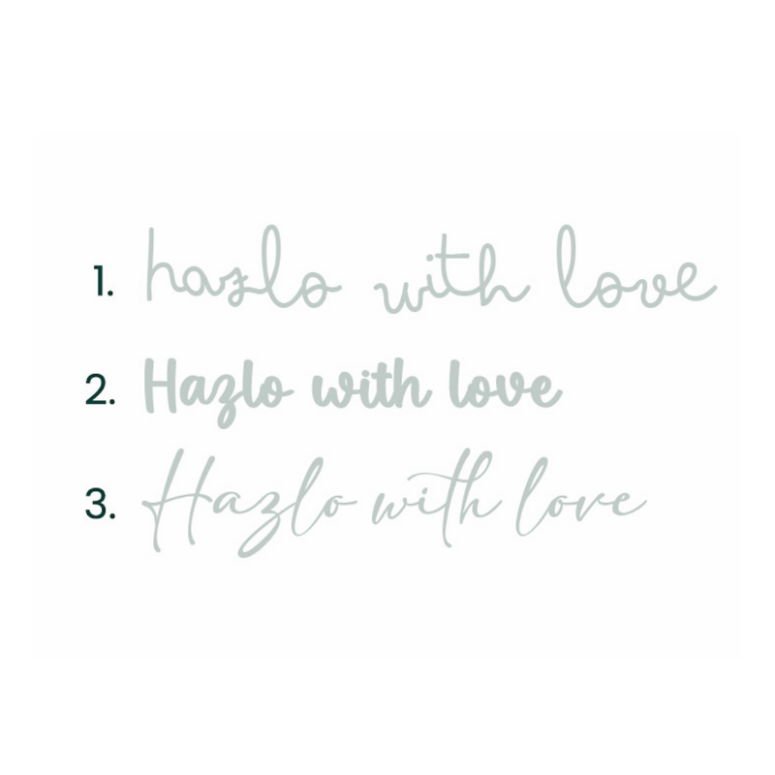 1. hazlo with love
2. Hazlo with love
3. Hazlo with love